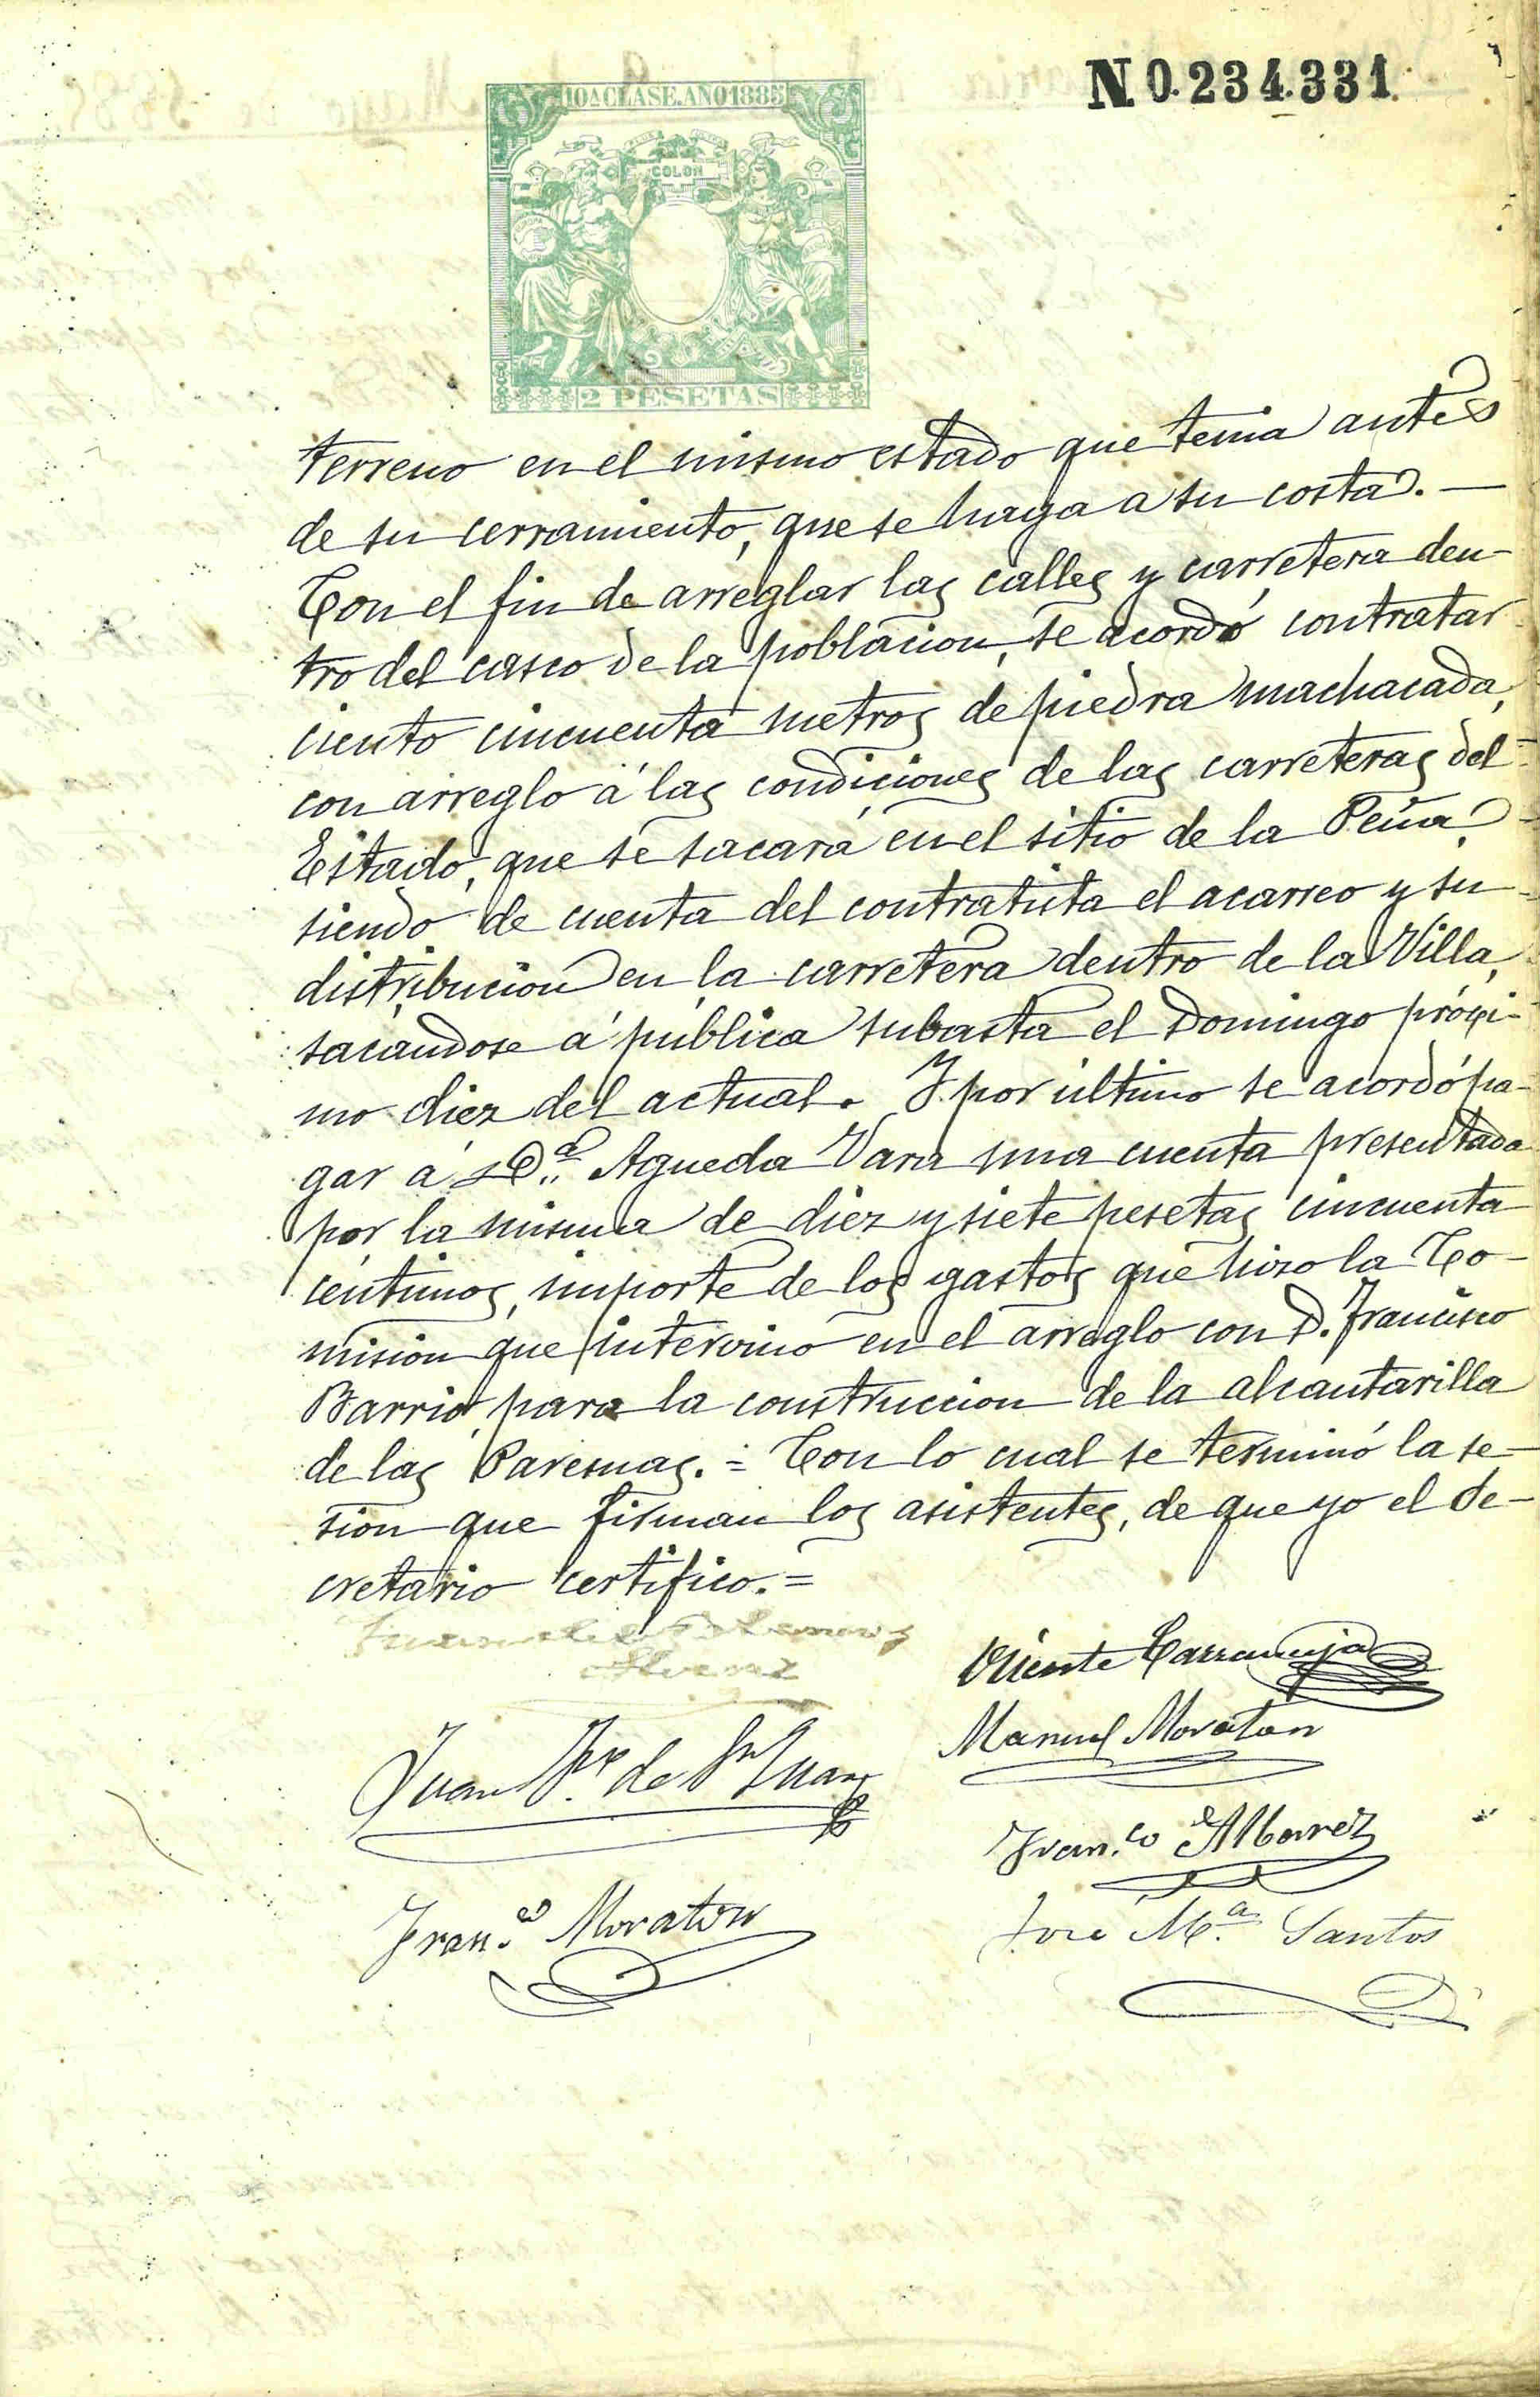 N.0.234.331
10A CLASE.AÑO 1885
COLON
2 PESETAS
terreno en el mismo estado que tenia antes
de su cerramiento, que se haga a su costa. —
Con el fin de arreglar las calles y carretera den-
tro del casco de la poblacion, se acordó contratar
ciento cincuenta metros de piedra machacada,
con arreglo á las condiciones de las carreteras del
Estado, que se sacará en el sitio de la Peña,
siendo de cuenta del contratista el acarreo y su
distribucion en la carretera dentro de la Villa,
sacandose á pública subasta el Domingo próxi-
mo diez del actual. Y por último se acordó pa-
gar á Dª. Agueda Vara una cuenta presentada
por la misma de diez y siete pesetas cincuenta
centimos, importe de los gastos que hizo la Co-
mision que intervino en el arreglo con D. Francisco
Barrio, para la construccion de la alcantarilla
de las Paresmas. = Con lo cual se terminó la se-
sion que firman los asistentes, de que yo el Se-
cretario certifico. =
Vicente Carramuja
Manuel Moraton
Juan de Sn Juan
Fran.co Albarez
Fran.co Moraton
José Mª. Santos